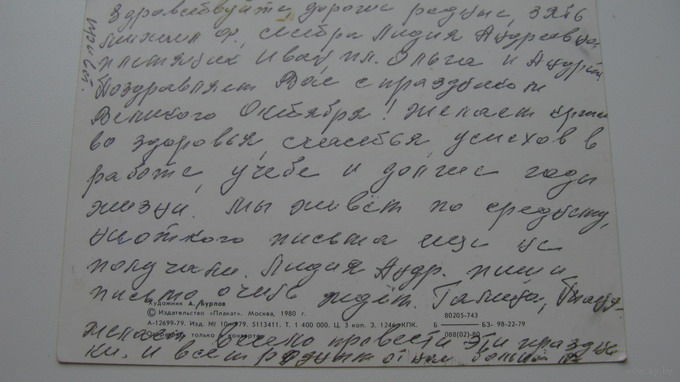 Здравствуйте, дорогие родные, зять
Михаил Ф., сестра Лидия Андреевна
племянник Иван пл. Ольга и Андрей.
Поздравляем Вас с праздником
Великого Октября! Желаем
во здоровья, счастья, успехов в
работе, учебе и долгие годы
жизни. Мы живём по среднему,
письма ещё не
получали. Лидия Андр. пиши
письмо очень ждём. Галина,
Художник А. Бурлов
© Издательство «Плакат». Москва, 1980 г.
80205-743
А-12699-79. Изд. № 10-979. 5113411. Т. 1 400 000. Ц. 3 коп. З. 1246 КПК.
Б — БЗ- 98-22-79
088(02)-80
только в
Желаем провести эти праздни
ки. И всем родным от нас большой